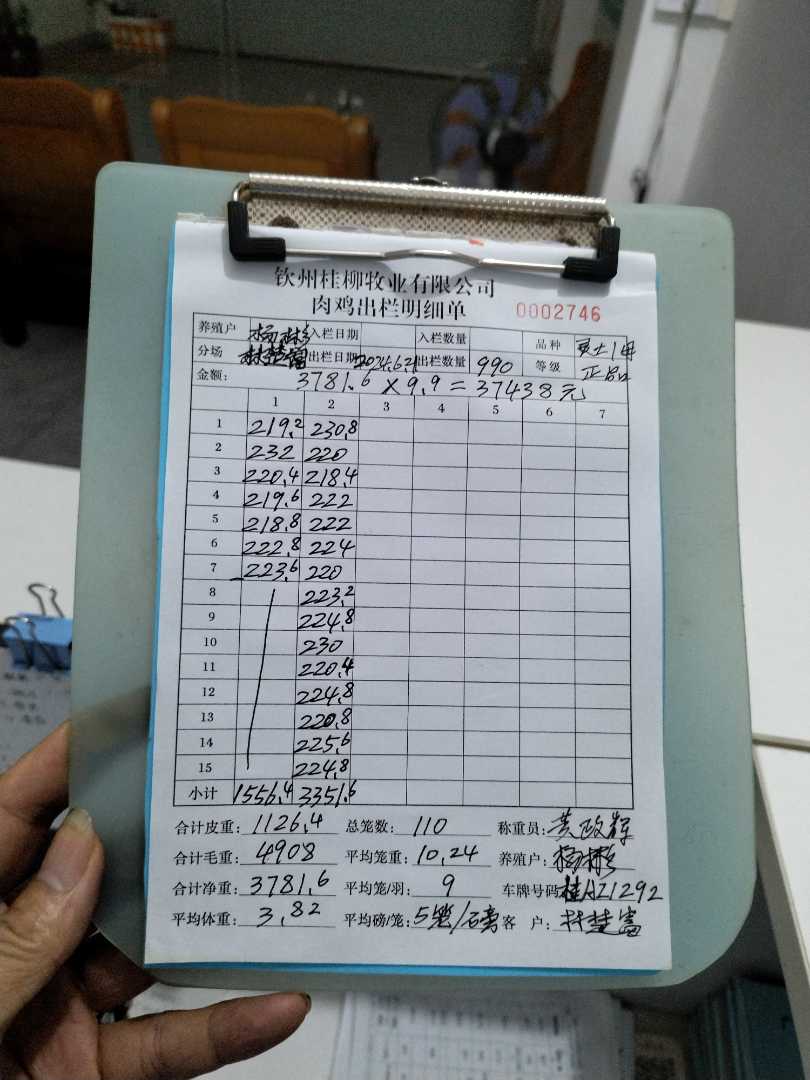 钦州桂柳牧业有限公司
肉鸡出栏明细单 0002746
养殖户 杨彬 入栏日期 入栏数量 品种
分场 林楚富 出栏日期 2024.6.21 出栏数量 990 等级 正品
金额: 3781.6 × 9.9 = 37438元
1 2 3 4 5 6 7
1 219.2 230.8
2 232 220
3 220.4 218.4
4 219.6 222
5 218.8 222
6 222.8 224
7 223.6 220
8 223.2
9 224.8
10 230
11 220.4
12 224.8
13 220.8
14 225.6
15 224.8
小计 1556.4 3351.6
合计皮重: 1126.4 总笼数: 110 称重员: 黄政辉
合计毛重: 4908 平均笼重: 10.24 养殖户: 杨彬
合计净重: 3781.6 平均笼/羽: 9 车牌号码 桂AZ1292
平均体重: 3.82 平均磅/笼: 5笼/磅 客 户: 林楚富